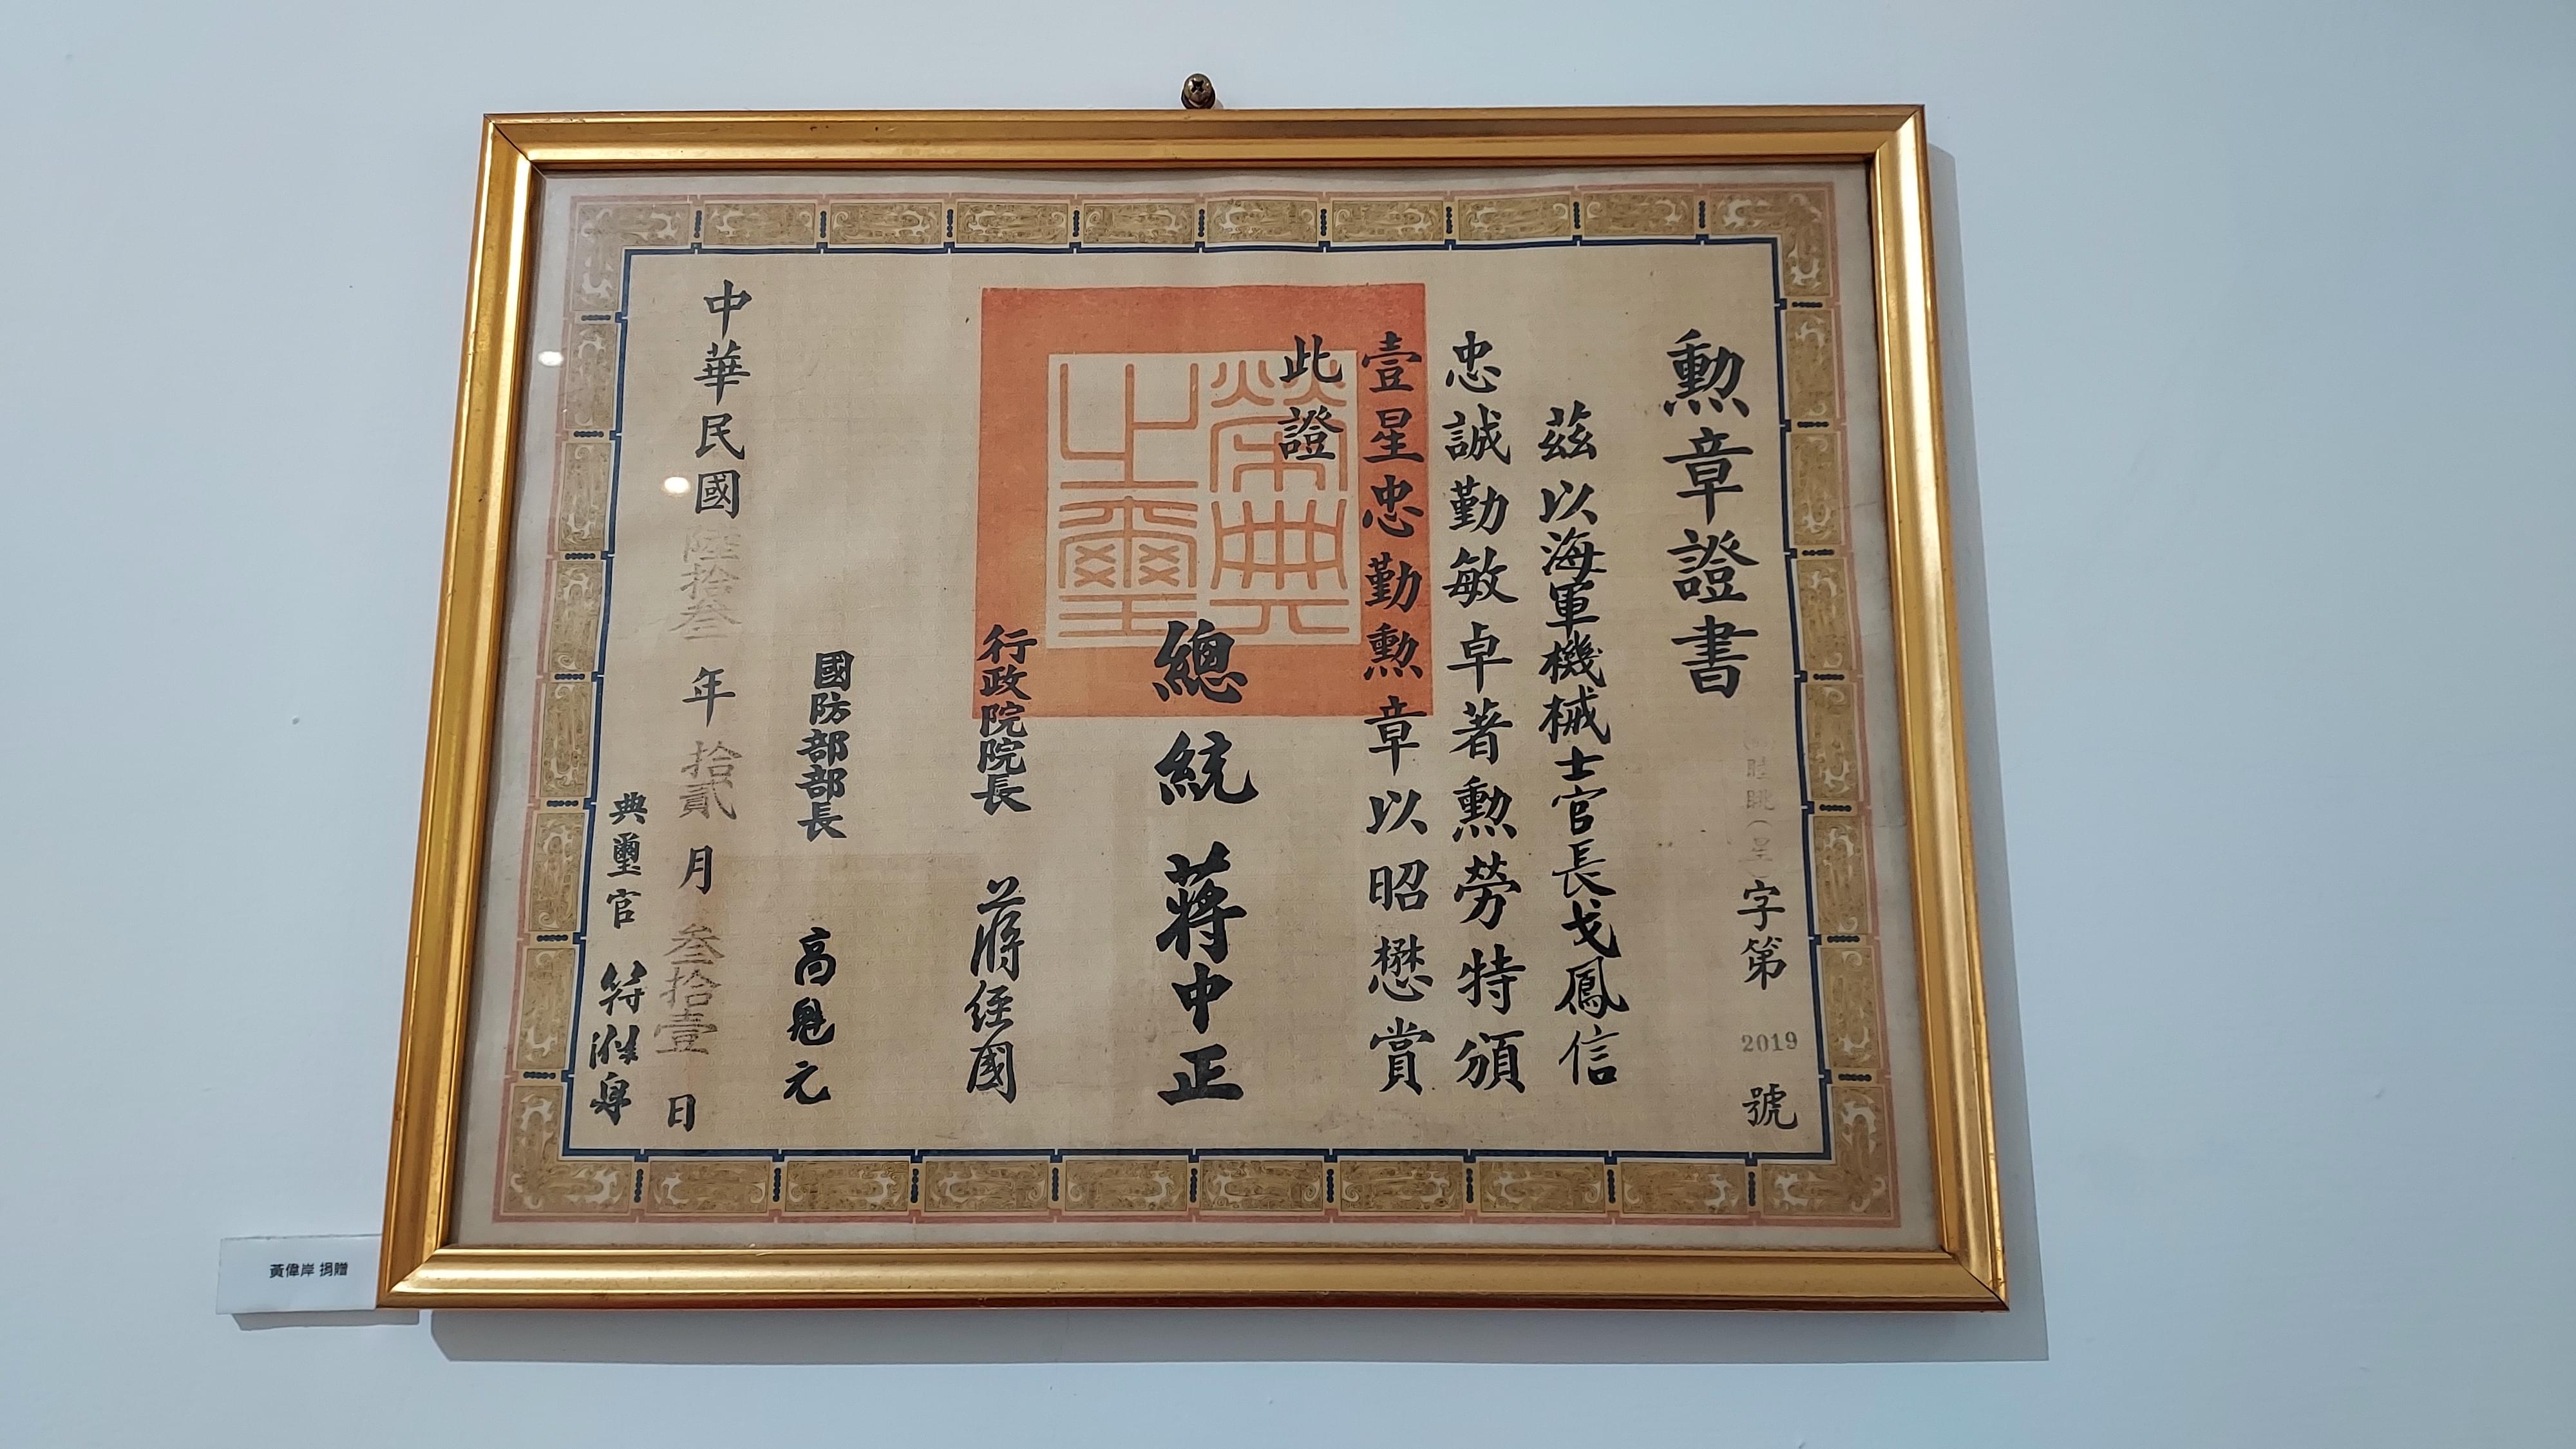 勲章證書
字第 2019 號
茲以海軍機械士官長戈鳳信
忠誠勤敏卓著勲勞特頒
壹星忠勤勲章以昭懋賞
此證
榮典之璽
總統 蔣中正
行政院院長 蔣經國
國防部部長 高魁元
中華民國陸拾叁年拾貳月叁拾壹日
典璽官
黃偉岸 捐贈